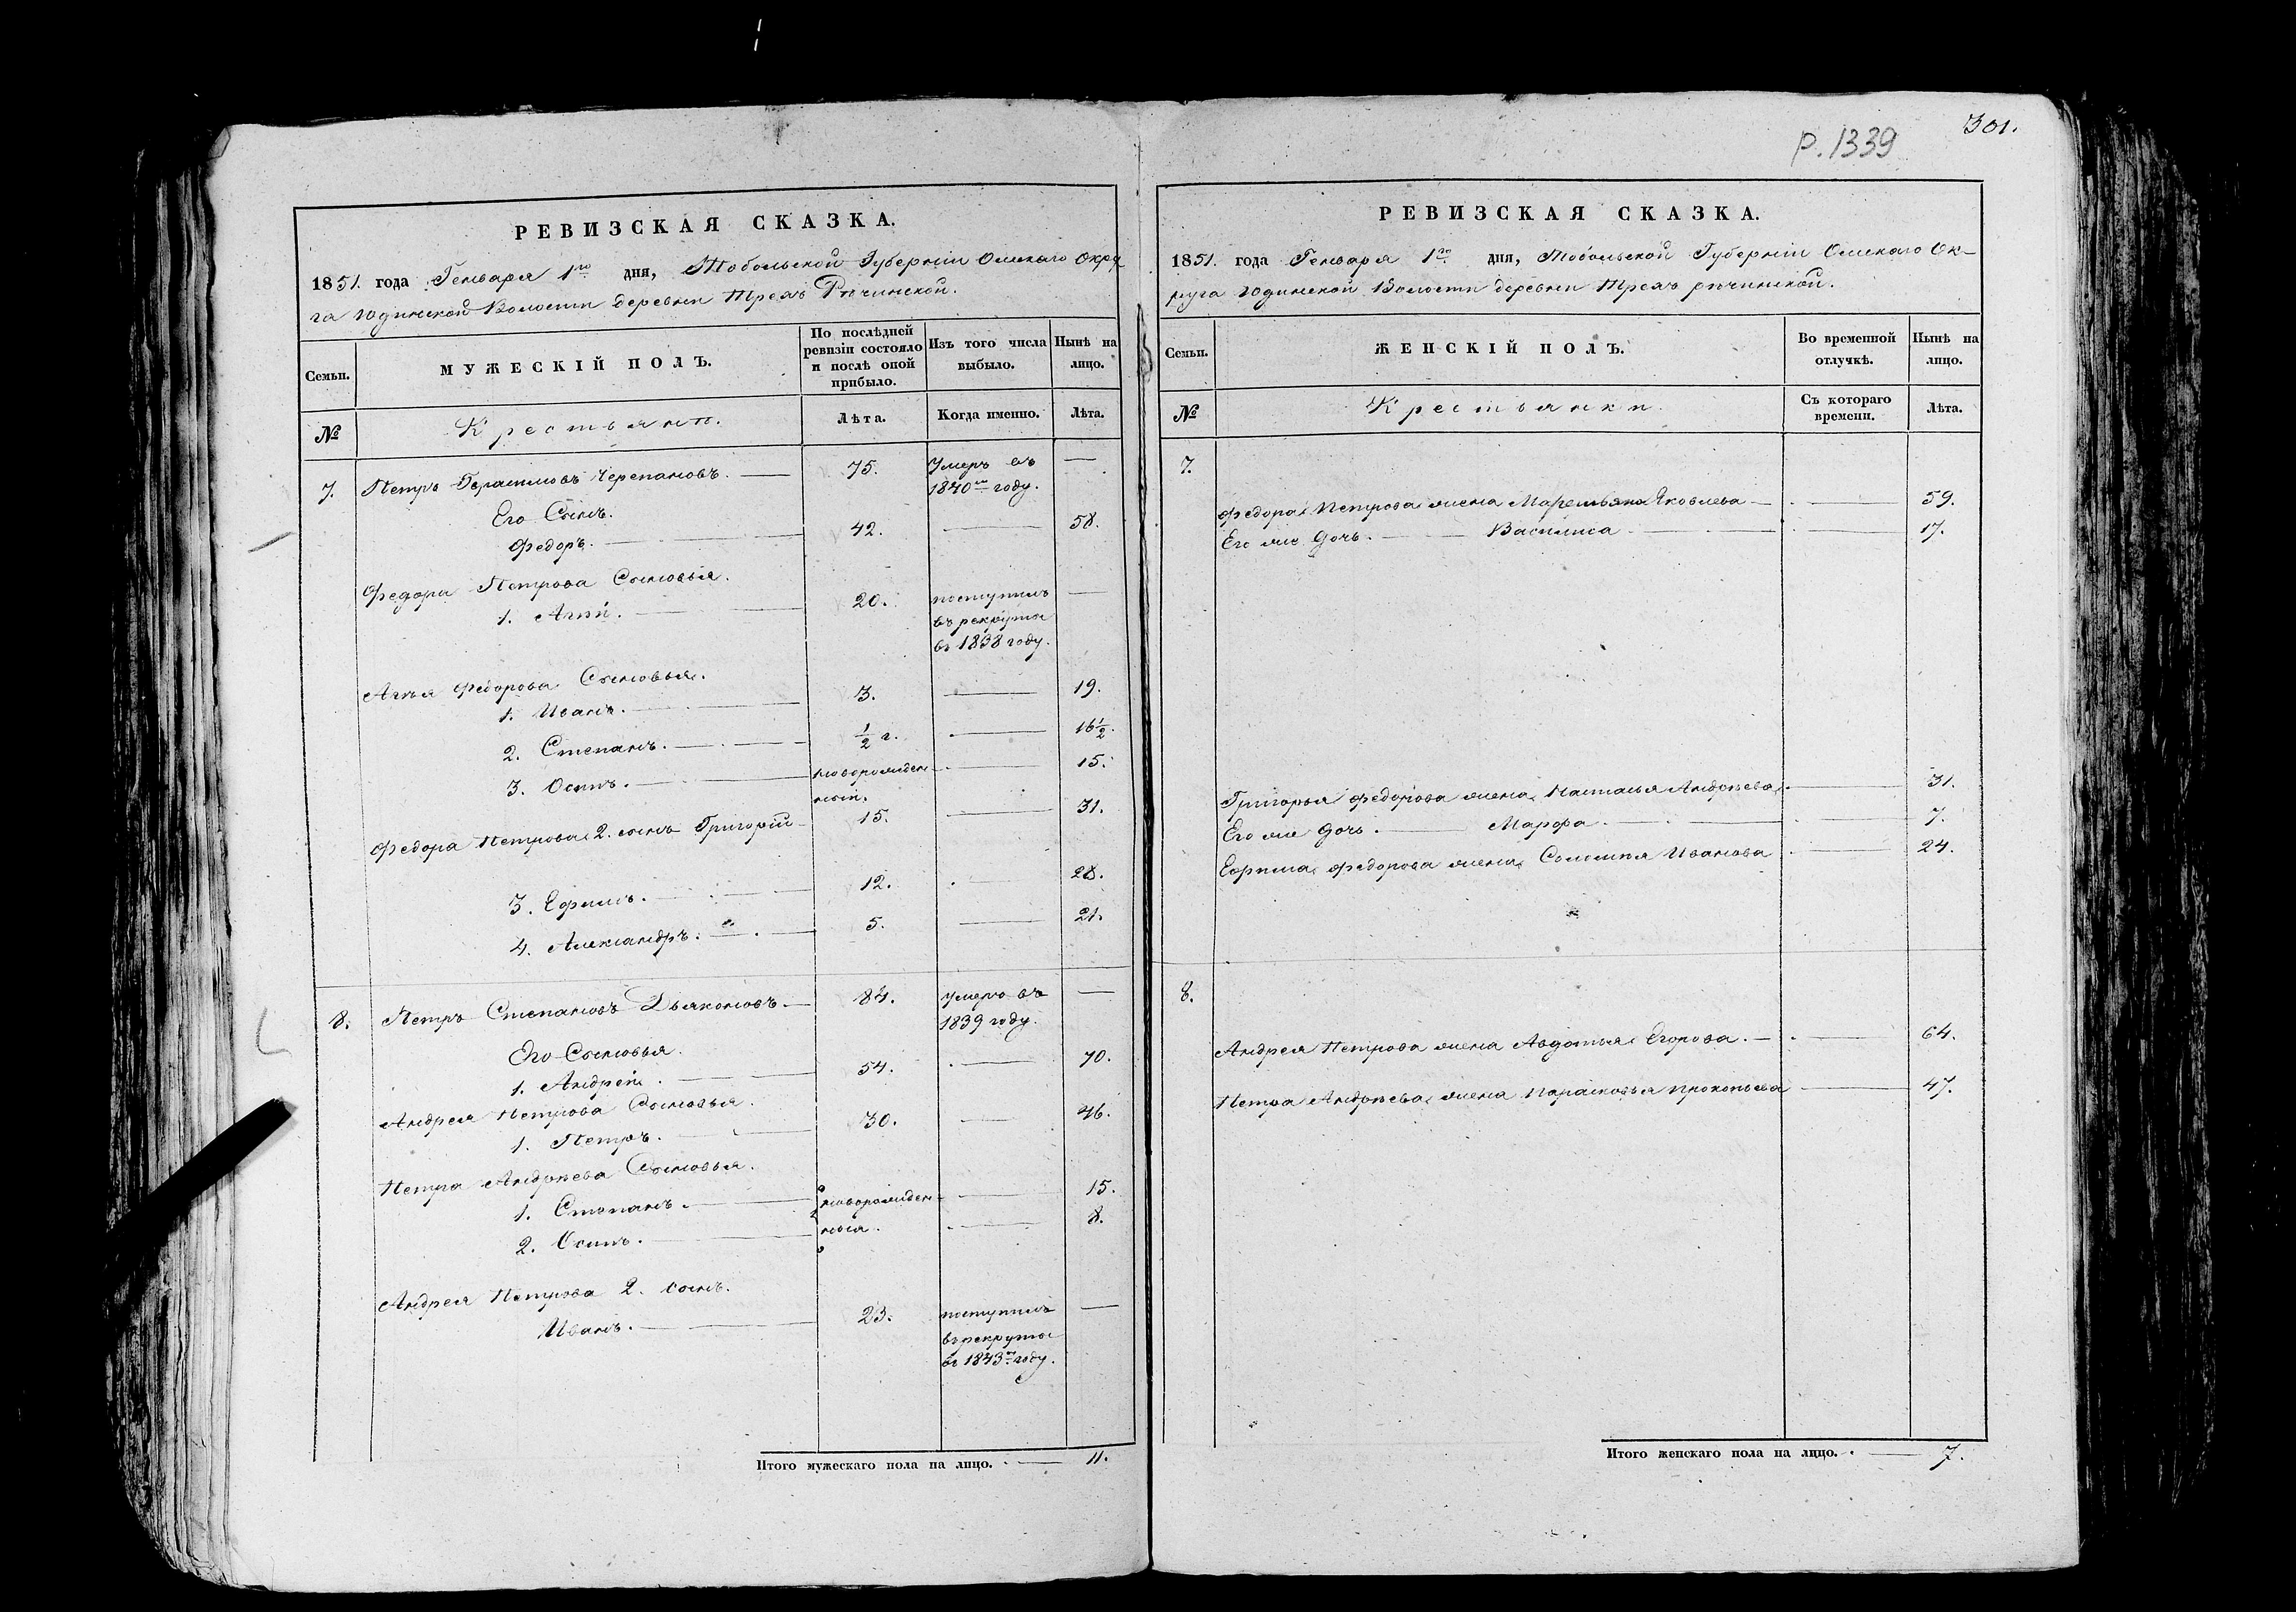 Р. 1339
301.
РЕВИЗСКАЯ СКАЗКА.
1851. года Генваря 1го дня, Тобольской Губерніи Омскаго Окру
га Юдинской Волости деревни Трехъ Рѣчинской.
Семьи. МУЖЕСКІЙ ПОЛЪ. По послѣдней ревизіи состояло и послѣ оной прибыло. Изъ того числа выбыло. Нынѣ на лицо.
№ Крестьяне. Лѣта. Когда именно. Лѣта.
7. Петръ Герасимовъ Черепановъ. — 75. Умеръ въ —
1840мъ году.
Его Сынъ.
Федоръ. — 42. — 58.
Федора Петрова Сыновья.
1. Агѣй. — 20. поступилъ —
въ рекруты
въ 1838 году.
Агѣя Федорова Сыновья.
1. Иванъ. — 3. — 19.
2. Степанъ. — 1/2 г. — 16 1/2.
3. Осипъ. — новорожден — 15.
ной.
Федора Петрова 2. сынъ Григорій 15. — 31.
3. Ефимъ. — 12. — 28.
4. Александръ. — 5. — 21.
8. Петръ Степановъ Дьяконовъ. — 84. умеръ въ —
1839 году.
Его Сыновья.
1. Андрей. — 54. — 70.
Андрея Петрова Сыновья.
1. Петръ. — 30. — 46.
Петра Андрѣева Сыновья.
1. Степанъ. — новорожден — 15.
2. Осипъ. — ныя. — 8.
Андрея Петрова 2. сынъ.
Иванъ. — 23. поступилъ —
въ рекруты
въ 1843мъ году.
Итого мужескаго пола на лицо. — 11.
РЕВИЗСКАЯ СКАЗКА.
1851. года Генваря 1го дня, Тобольской Губерніи Омскаго Ок-
руга Юдинской Волости деревни Трехъ рѣчинской.
Семьи. ЖЕНСКІЙ ПОЛЪ. Во временной отлучкѣ. Нынѣ на лицо.
№ Крестьянки. Съ котораго времени. Лѣта.
7.
Федора Петрова жена Маремьяна Яковлева — — 59.
Его же дочь. — Василиса — — 17.
Григорья Федорова жена Наталья Андрѣева. — 31.
Его же дочь. — Марфа. — — 7.
Ефима Федорова жена Соломия Иванова — 24.
8.
Андрея Петрова жена Авдотья Егорова. — — 64.
Петра Андрѣева жена Парасковья Прокопьева — 47.
Итого женскаго пола на лицо. — 7.